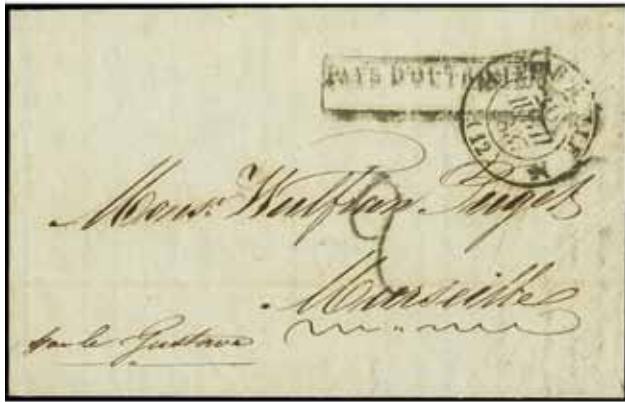 PAYS D'OUTREMER
(12)
Mons.r Wulfran Puget
2
Marseille
par le Gustave